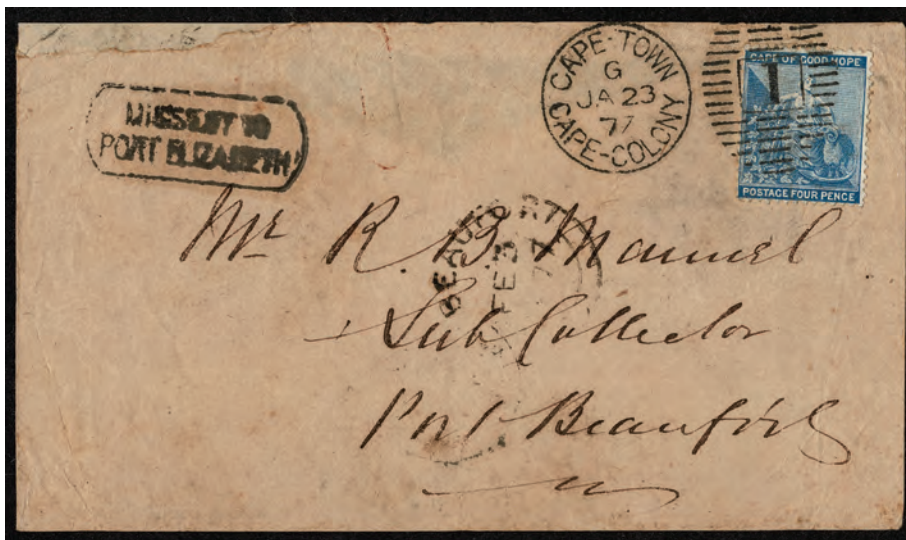 MISSENT TO
PORT ELIZABETH
CAPE-TOWN
G
JA 23
77
CAPE-COLONY
1
CAPE OF GOOD HOPE
POSTAGE FOUR PENCE
Mr R. B. Manuel
Sub Collector
Port Beaufort
BEAUFORT
FE 3
77